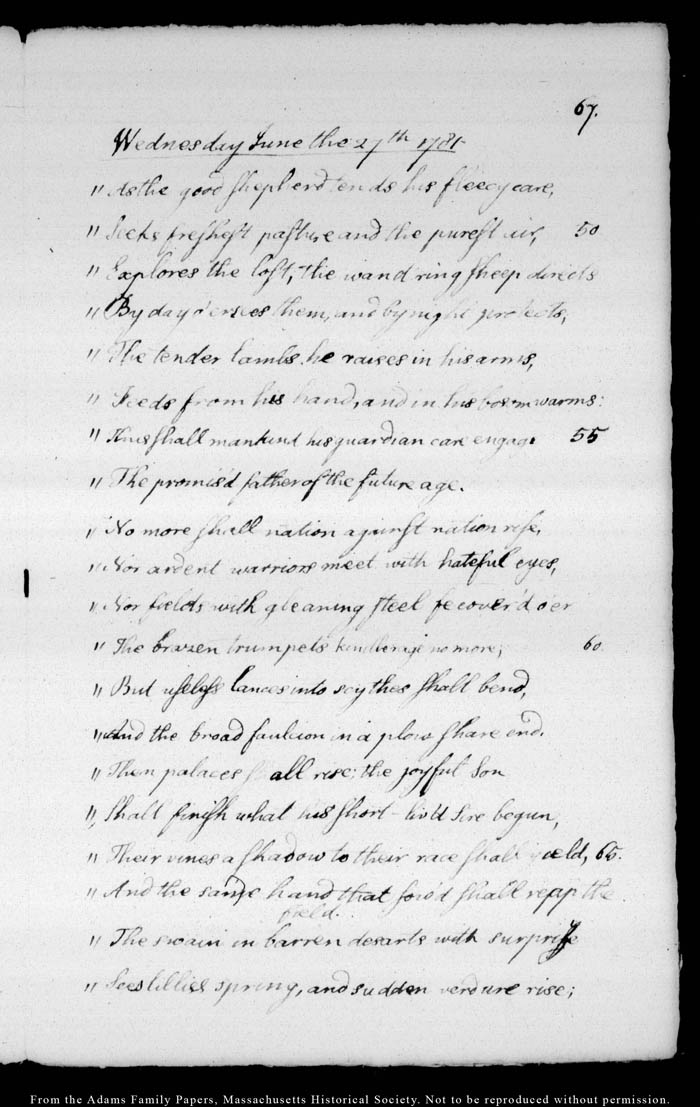 67.
Wednesday June the 27th 1781
" As the good shepherd tends his fleecy care,
" Seeks freshest pasture and the purest air, 50
" Explores the lost, the wand'ring sheep directs
" By day o'ersees them, and by night protects,
" The tender lambs he raises in his arms,
" Feeds from his hand, and in his bosom warms:
" Thus shall mankind his guardian care engage 55
" The promis'd father of the future age.
" No more shall nation against nation rise,
" Nor ardent warriors meet with hateful eyes,
" Nor fields with gleaming steel be cover'd o'er
" The brazen trumpets kindle rage no more; 60.
" But useless lances into scythes shall bend,
" And the broad faulcion in a plow share end.
" Then palaces shall rise; the joyful Son
" Shall finish what his short-liv'd Sire begun,
" Their vines a shadow to their race shall yield, 65.
" And the same hand that sow'd shall reap the
field.
" The swain in barren desarts with surprise
" Sees lillies spring, and sudden verdure rise;
From the Adams Family Papers, Massachusetts Historical Society. Not to be reproduced without permission.